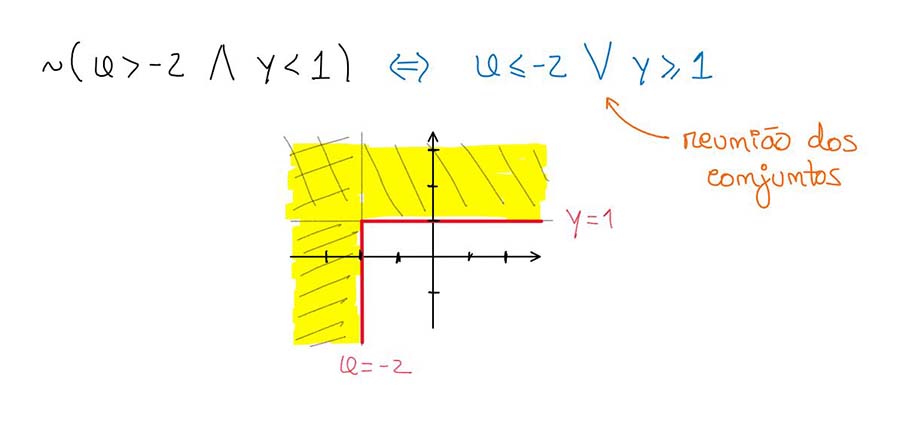 ~(x > -2 ∧ y < 1) ⇔ x ≤ -2 ∨ y ≥ 1
reunião dos
conjuntos
y = 1
x = -2